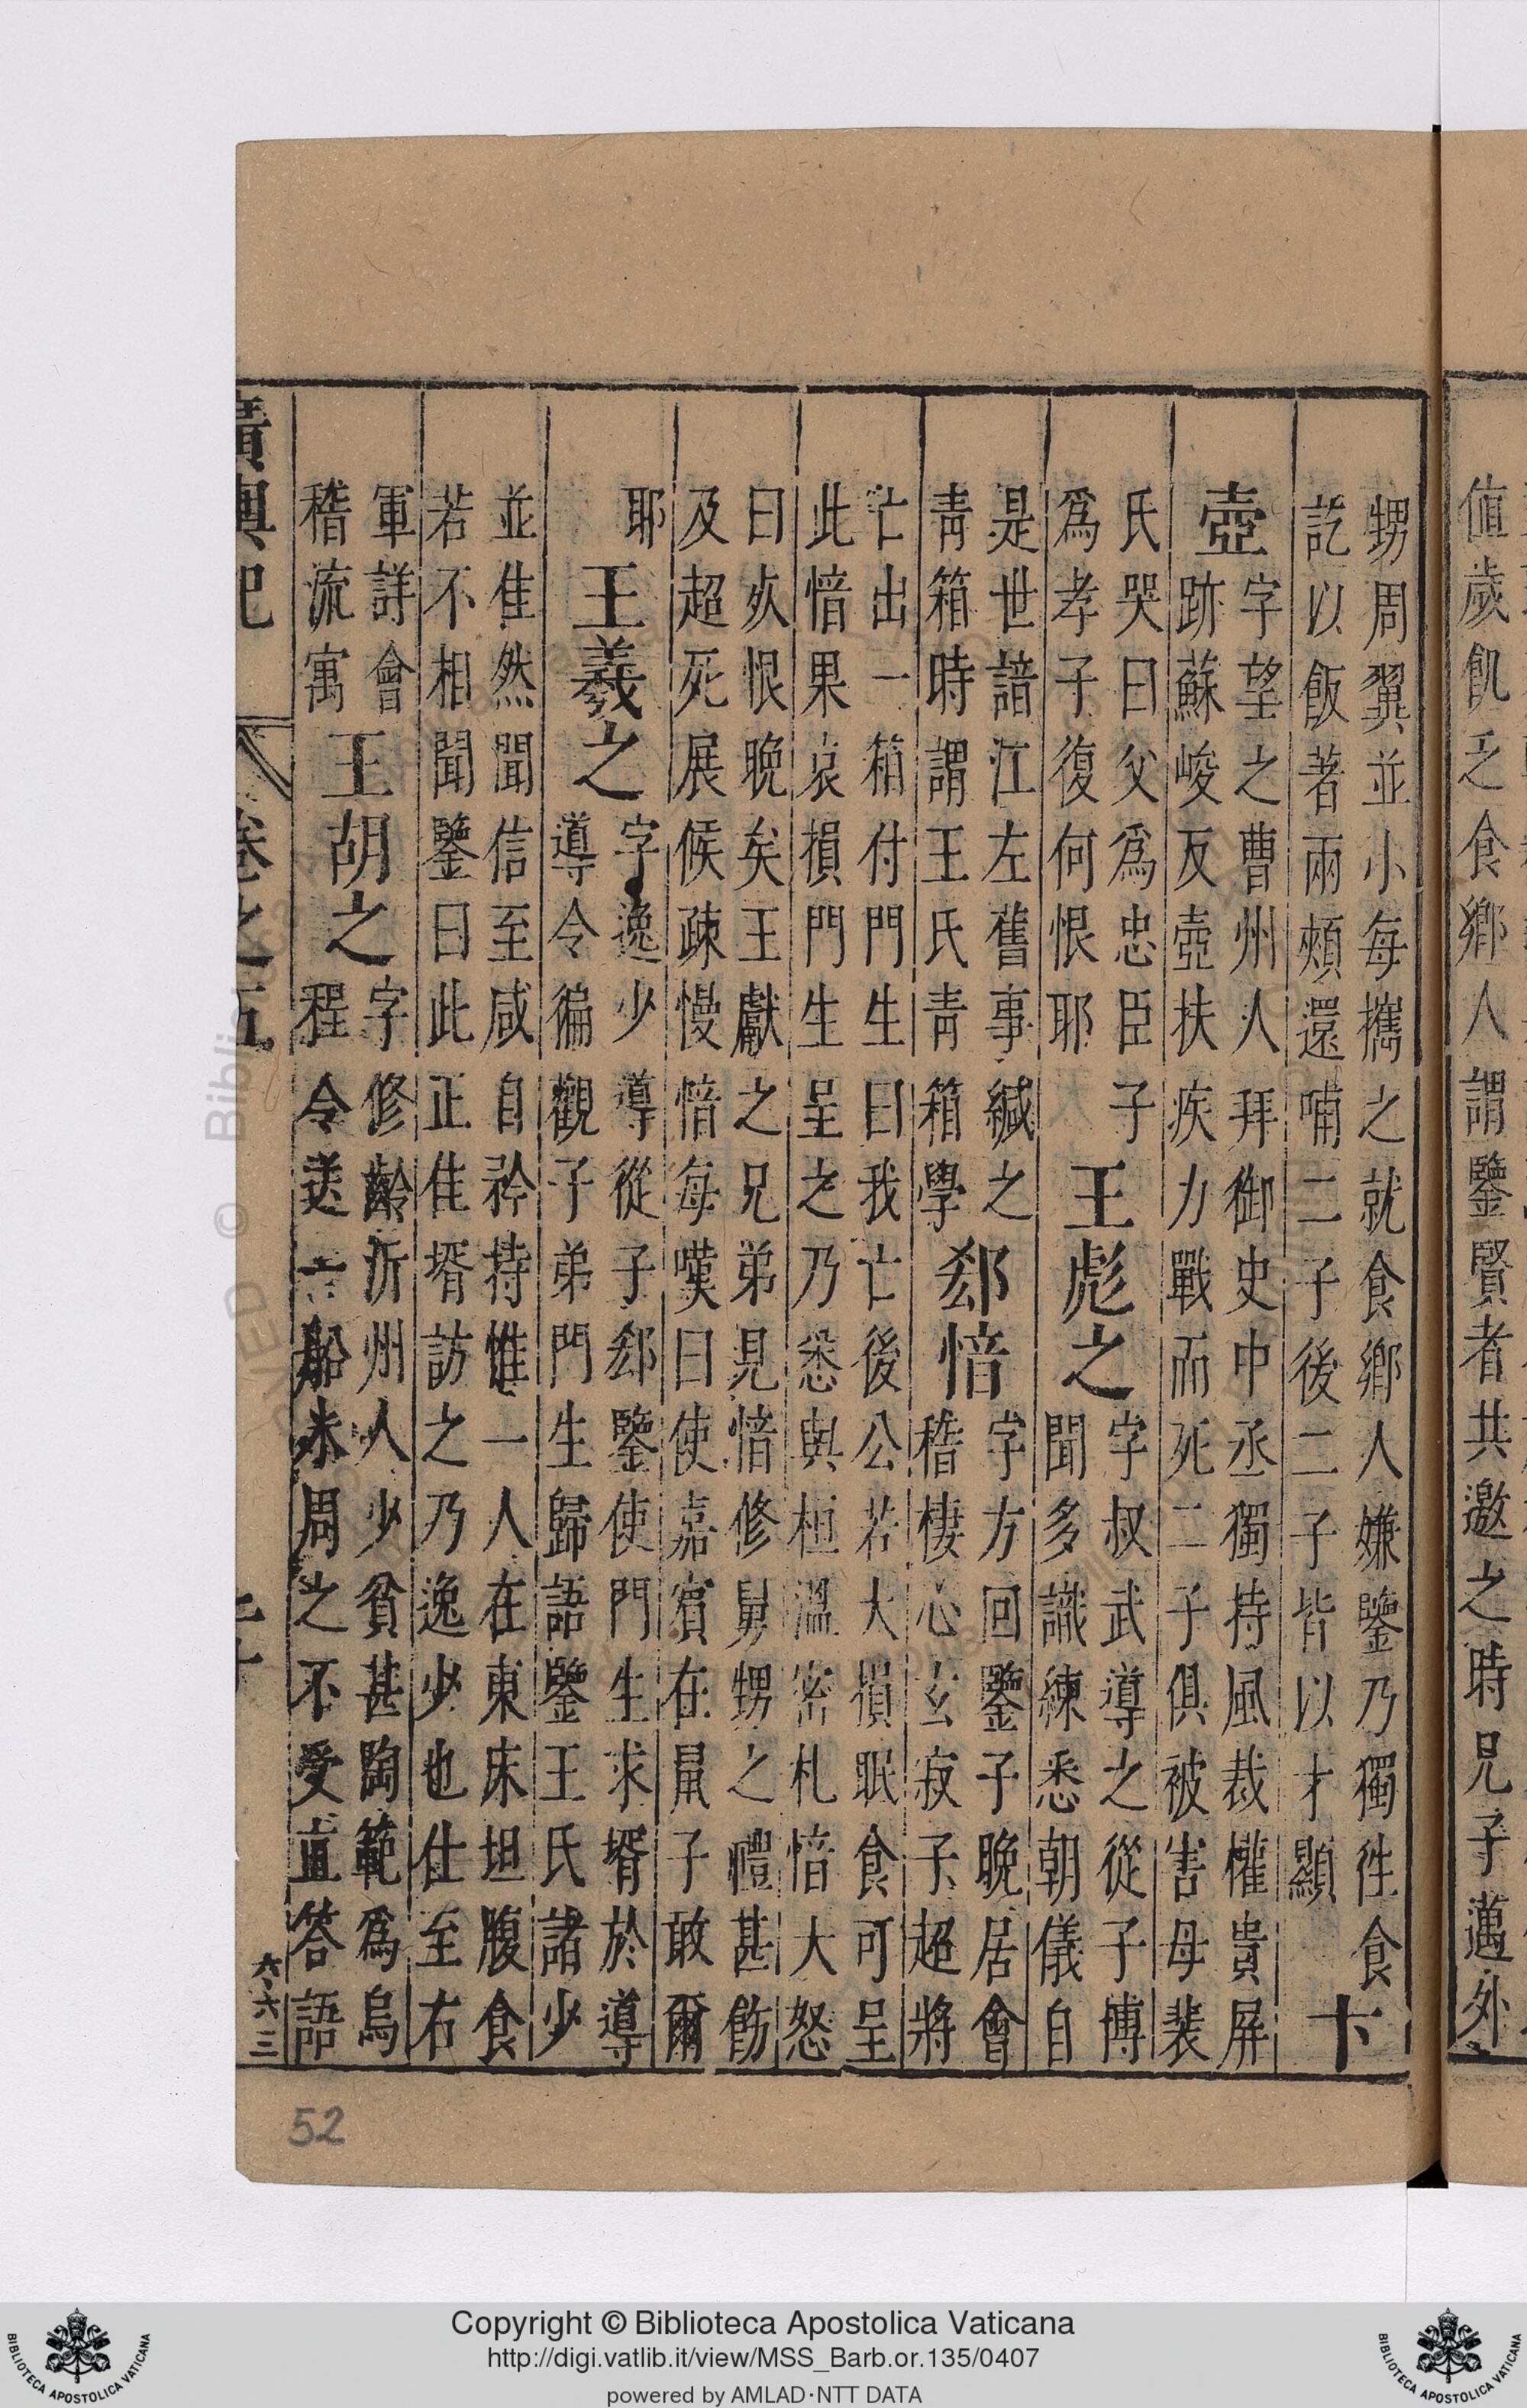 値歲飢乏食鄉人謂鑒賢者共邀之時兄子邁外
甥周翼並小每攜之就食鄉人嫌鑒乃獨徃食
訖以飯著兩頰還哺二子後二子皆以才顯
卞
壺
字望之曹州人拜御史中丞獨持風裁權貴屏
跡蘇峻反壺扶疾力戰而死二子俱被害母裴
氏哭曰父爲忠臣子
爲孝子復何恨耶
王彪之
字叔武導之從子博
聞多識練悉朝儀自
是世諳江左舊事緘之
青箱時謂王氏青箱學
郄愔
字方回鑒子晚居會
稽棲心玄寂子超將
亡出一箱付門生曰我亡後公若大損眠食可呈
此愔果哀損門生呈之乃悉與桓溫密札愔大怒
曰死恨晚矣王獻之兄弟見愔修舅甥之禮甚飭
及超死展候疎慢愔每嘆曰使嘉賓在鼠子敢爾
耶
王羲之
字逸少導從子郄鑒使門生求壻於導
導令徧觀子弟門生歸語鑒王氏諸少
並佳然聞信至咸自矜持惟一人在東床坦腹食
若不相聞鑒曰此正佳壻訪之乃逸少也仕至右
軍詳會
稽流寓
王胡之
字修齡沂州人少貧甚陶範爲烏
程令送一船米周之不受直答語
廣輿記
卷之五
六六三
52
Copyright © Biblioteca Apostolica Vaticana
http://digi.vatlib.it/view/MSS_Barb.or.135/0407
powered by AMLAD·NTT DATA
BIBLIOTECA APOSTOLICA VATICANA
BIBLIOTECA APOSTOLICA VATICANA